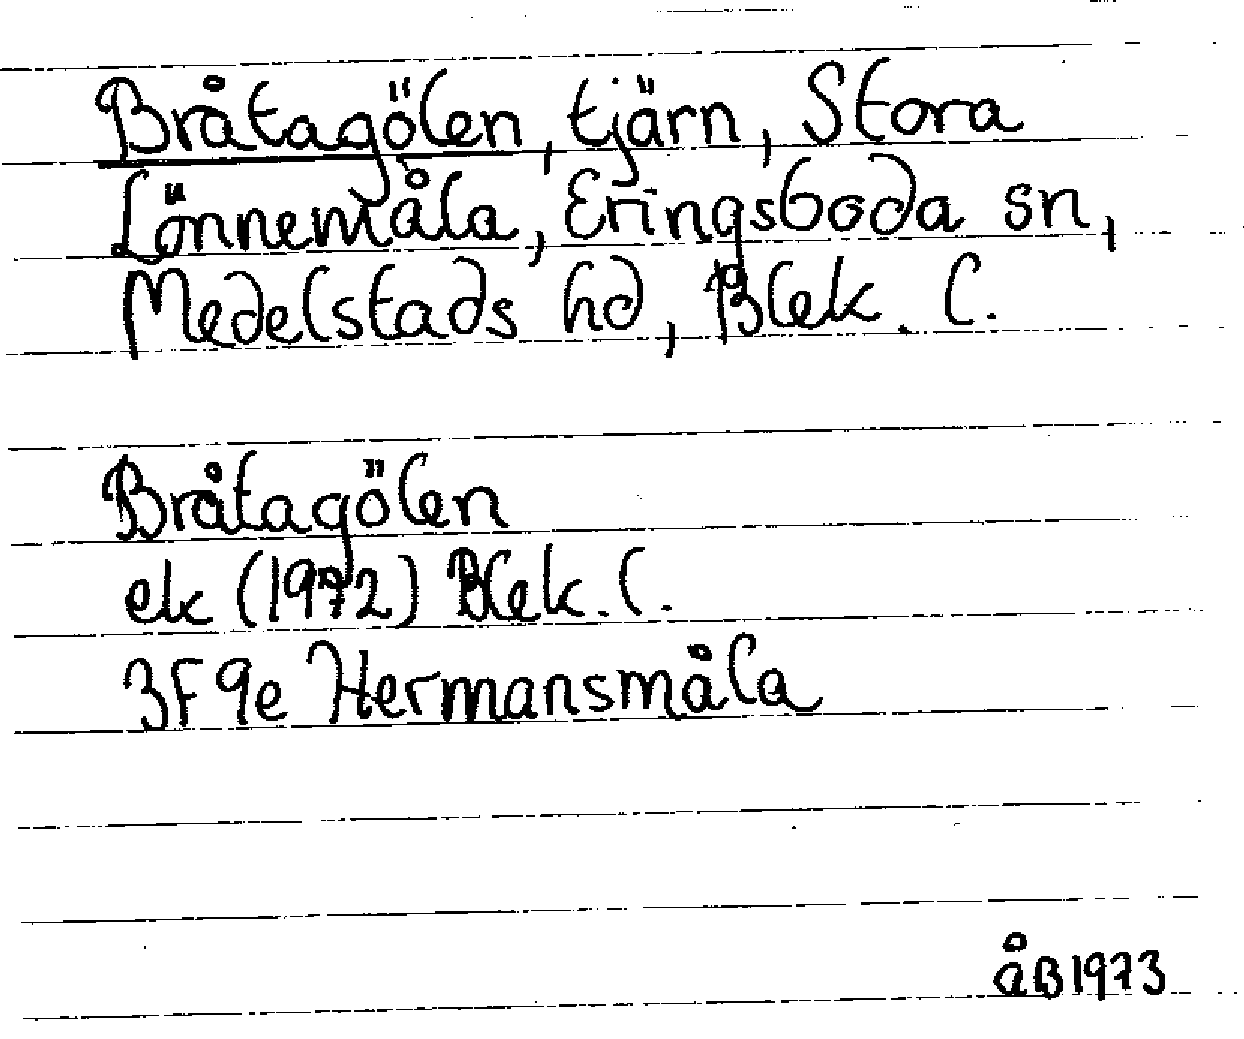 Bråtagölen, tjärn, Stora
Lönnemåla, Eringsboda sn,
Medelstads hd, Blek. l.
Bråtagölen
ek (1972) Blek. l.
3F 9e Hermansmåla
åB 1973